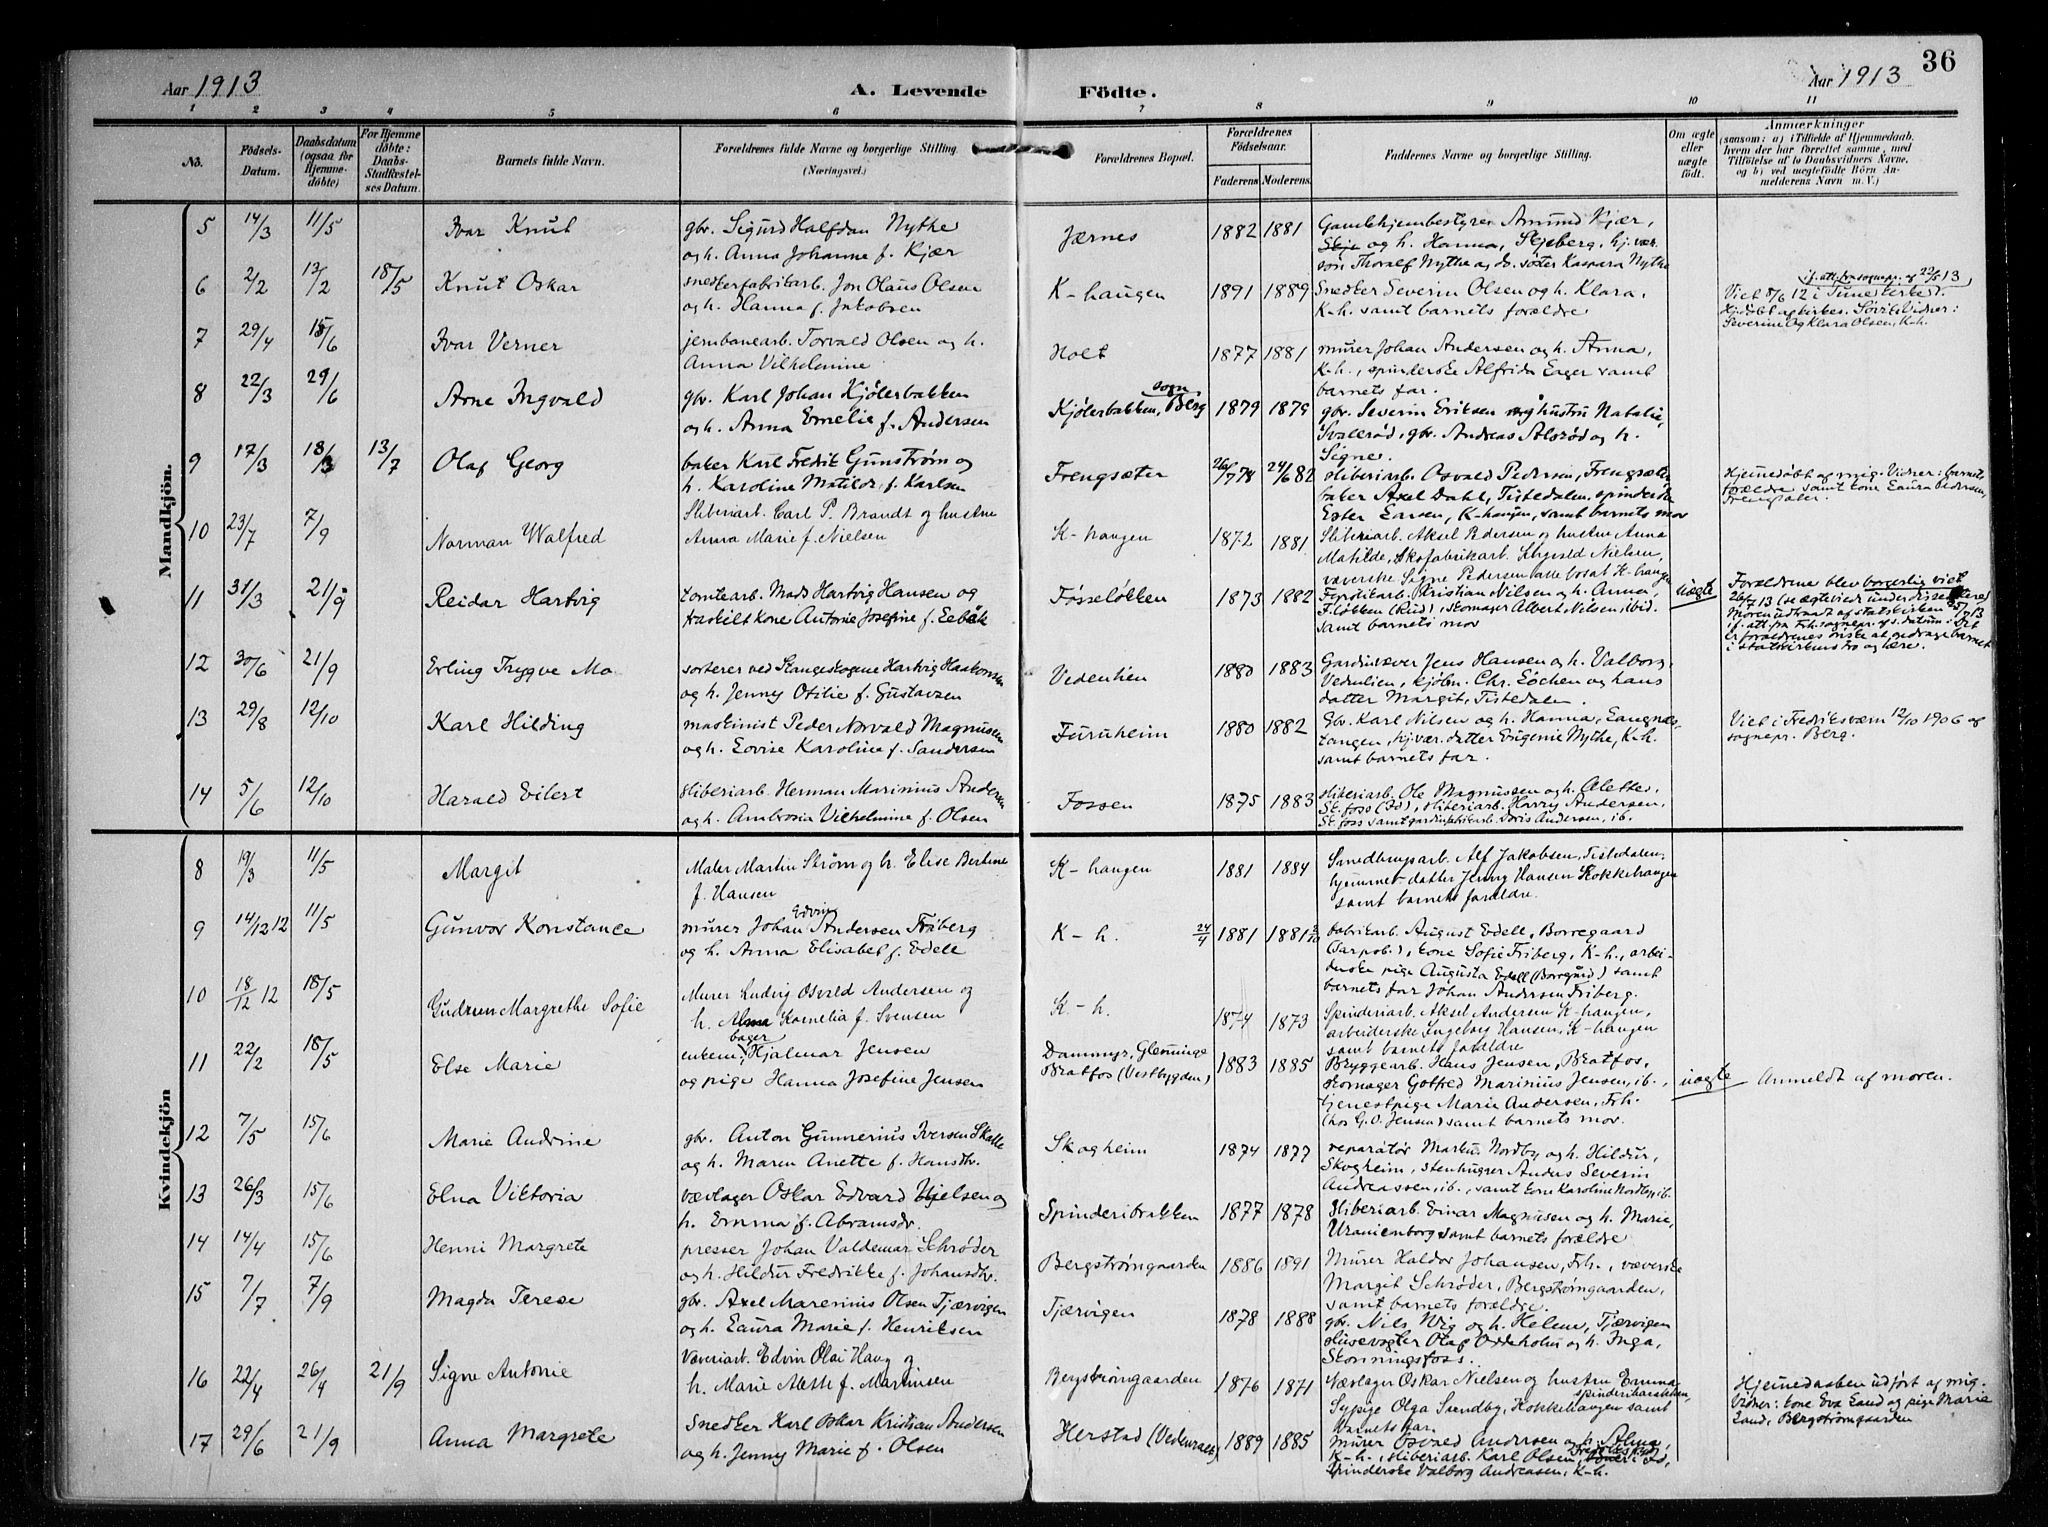 36
Aar 1913 A. Levende Födte. Aar 1913
1 2 3 4 5 6 7 8 9 10 11
No. Födsels-Datum. Daabsdatum (ogsaa for Hjemmedöbte) For Hjemmedöbte: Daabs-Stadfæstelses Datum. Barnets fulde Navn. Forældrenes fulde Navne og borgerlige Stilling. (Næringsvei.) Forældrenes Bopæl. Forældrenes Födselsaar. Faderens Moderens. Faddernes Navne og borgerlige Stilling. Om ægte eller uægte födt. Anmærkninger (saasom: a) i Tilfælde af Hjemmedaab, hvem der har forrettet samme, med Tilföielse af to Daabsvidners Navne, og b) ved uægtefödte Börn Anmelderens Navn m. V.)
Mandkjön.
5 14/3 11/5 Ivar Knut gbr. Sigurd Halfdan Nythe
og h. Anna Johanne f. Kjær
Jærnes 1882 1881 Gamlehjembestyrer Amund Kjær,
og h. Hanna, Skjeberg, hj.vær.
søn Thoralf Nythe og do. søster Kaspara Nythe
6 2/2 13/2 18/5 Knut Oskar snedkerfabrikarb. Jon Olaus Olsen
og h. Hanna f. Jakobsen
K-haugen 1891 1889 Snedker Severin Olsen og h. Klara,
K-h. samt barnets forældre
if. att. fra sognepr. af 22/5 13
Viet 8/6 12 i Tune kirke.
Hjdøbt af Vidner:
Severine og Klara Olsen, K-h.
7 29/4 15/6 Ivar Verner jernbanearb. Torvald Olsen og h.
Anna Vilhelmine
Holt 1877 1881 murer Johan Andersen og h. Anna,
K-h., spinderske Alfrida Lager samt
barnets far.
8 22/3 29/6 Arne Ingvald gbr. Karl Johan Kjølerbakken
og h. Anna Emelie f. Andersen
Kjølerbakken, Berg sogn 1879 1879 gbr. Severin Eriksen og hustru Natalie,
Svalerød, gbr. Andreas Alsrød og h.
Signe.
9 17/3 18/3 13/7 Olaf Georg baker Karl Fredik Gunstrøm og
h. Karoline Matilde f. Karlsen
Frengsæter 26/7 78 24/6 82 sliberiarb. Osvald Pedersen, Frengsæter
baker Axel Dahl, Tistedalen, spinderske
Ester Larsen, K-haugen, samt barnets mor
Hjemedøbt af mig. Vidner: barnets
forældre samt kone Laura Pedersen,
Frengsæter.
10 23/7 7/9 Norman Walfred Sliberiarb. Carl P. Brandt og hustru
Anna Marie f. Nielsen
K-haugen 1872 1881 Sliberiarb. Aksel Pedersen og hustru Anna
Matilde, skofabrikarb. Nielsen,
væverske Signe Pedersen alle bosat K-haugen
11 31/3 21/9 Reidar Hartvig tomtearb. Mads Hartvig Hansen og
fraskilt kone Antonie Josefine f. Lebäk
Føsseløkken 1873 1882 Kristian Nilsen og h. Anna,
F.løkken (Rud), skomager Albert Nilsen, ibid.
samt barnets mor
uægte Forældrene blev borgerlig viet
26/7 13
Moren udtraadt af statskirken 25/7 13
if. att. fra Frh. sognepr. af s. datum. Det
er forældrenes ønske at opdrage barnet
i statskirkens tro og lære.
12 30/6 21/9 Erling Trygve Mo sorterer ved Stangeskogene Hartvig Haakonsen
og h. Jenny Otilie f. Gustavsen
Vedenlien 1880 1883 Gardinvæver Jens Hansen og h. Valborg,
Vedenlien, kjøbm. Chr. Løchen og hans
datter Margit, Tistedalen.
13 29/8 12/10 Karl Hilding maskinist Peder Norvald Magnussen
og h. Lovise Karoline f. Sandersen
Furuheim 1880 1882 Gbr. Karl Nilsen og h. Hanna, Langnæs-
tangen, hj.vær. datter Eugenie Nythe, K-h.
samt barnets far.
Viet i Fredriksværn 12/10 1906 af
sognepr. Berg.
14 5/6 12/10 Harald Eilert sliberiarb. Herman Marinius Andersen
og h. Ambrosia Vilhelmine f. Olsen
Fossen 1875 1883 sliberiarb. Ole Magnussen og h. Alette,
Sk.foss (Id), sliberiarb. Harry Andersen,
Sk.foss samt gardinfabrikarb. Doris Andersen, ib.
Kvindekjön
8 19/3 11/5 Margit Maler Martin Strøm og h. Elise Bertine
f. Hansen
K-haugen 1881 1884 Alf Jakobsen, Tistedalen,
hjemmev. datter Jenny Hansen Kokkehaugen
samt barnets forældre.
9 14/12 12 11/5 Gunvor Konstance murer Johan Edvin Andersen Friberg
og h. Anna Elisabet f. Edell
K-h. 24/4 1881 1881 fabrikarb. August Edell, Borregaard
(Sarpsb.), kone Sofie Friberg, K-h., arbei-
derske pige Augusta Edell (Borregård) samt
barnets far Johan Andersen Friberg.
10 18/12 12 18/5 Gudrun Margrethe Sofie Murer Ludvig Osvald Andersen og
h. Alma Kornelia f. Svensen
K-h. 1874 1873 Spinderiarb. Aksel Andersen K-haugen,
arbeiderske Ingeborg Hansen, K-haugen
samt barnets forældre
11 22/2 18/5 Else Marie enkem. bager Hjalmar Jensen
og pige Hanna Josefine Jensen
Dammyr, Glemminge
Bratfos (Vestbygden) 1883 1885 Bryggearb. Hans Jensen, Bratfos,
skomager Gotfred Marinius Jensen, ib.,
tjenestpige Marie Andersen, Frh.
(hos G. O. Jensen) samt barnets mor.
uægte Anmeldt af moren.
12 7/5 15/6 Marie Andrine gbr. Anton Gunnerius Iversen Skalle
og h. Maren Anette f. Hansdtr.
Skogheim 1874 1877 reparatør Markus Nordby og h. Hildur,
Skogheim, stenhugger Anders Severin
Andreassen, ib., samt kone Karoline Nordby, ib.
13 26/3 15/6 Elna Viktoria vævlager Oskar Edvard Nielsen og
h. Emma f. Abramsdr.
Spinderibrakken 1877 1878 Sliberiarb. Einar Magnusen og h. Marie,
Uranienborg samt barnets forældre
14 14/4 15/6 Henni Margrete presser Johan Valdemar Schrøder
og h. Hildur Fredrikke f. Johansdtr.
Bergstrømgaarden 1886 1891 Murer Haldor Johansen, Frh., væverske
Margit Schrøder, Bergstrømgaarden,
samt barnets forældre.
15 7/7 7/9 Magda Terese gbr. Axel Marenius Olsen Tjærvigen
og h. Laura Marie f. Henriksen
Tjærvigen 1878 1888 gbr. Nils Wig og h. Helene, Tjærvigen
slusevogter Olaf og h. Inga,
Skonningsfoss.
16 22/4 26/4 21/9 Signe Antonie Væveriarb. Edvin Olai Haug og
h. Marie Aleth f. Martinsen
Bergstrømgaarden 1876 1871 Vævlager Oskar Nielsen og hustru Emma
spinderibarakken,
Sypige Olga Svendby, Kokkehaugen samt
barnets far.
Hjemedaaben udført af mig.
Vidner: kone Eva Lund og pige Marie
Lund, Bergstrømgaarden
17 29/6 21/9 Anna Margrete Snedker Karl Oskar Kristian Andersen
og h. Jenny Marie f. Olsen
Herstad (Vedenraak) 1889 1885 murer Osvald Andersen og h. Alma,
K-h., sliberiarb. Karl Olsen, i Id,
Spinderske Valborg Andreasen, K-h.